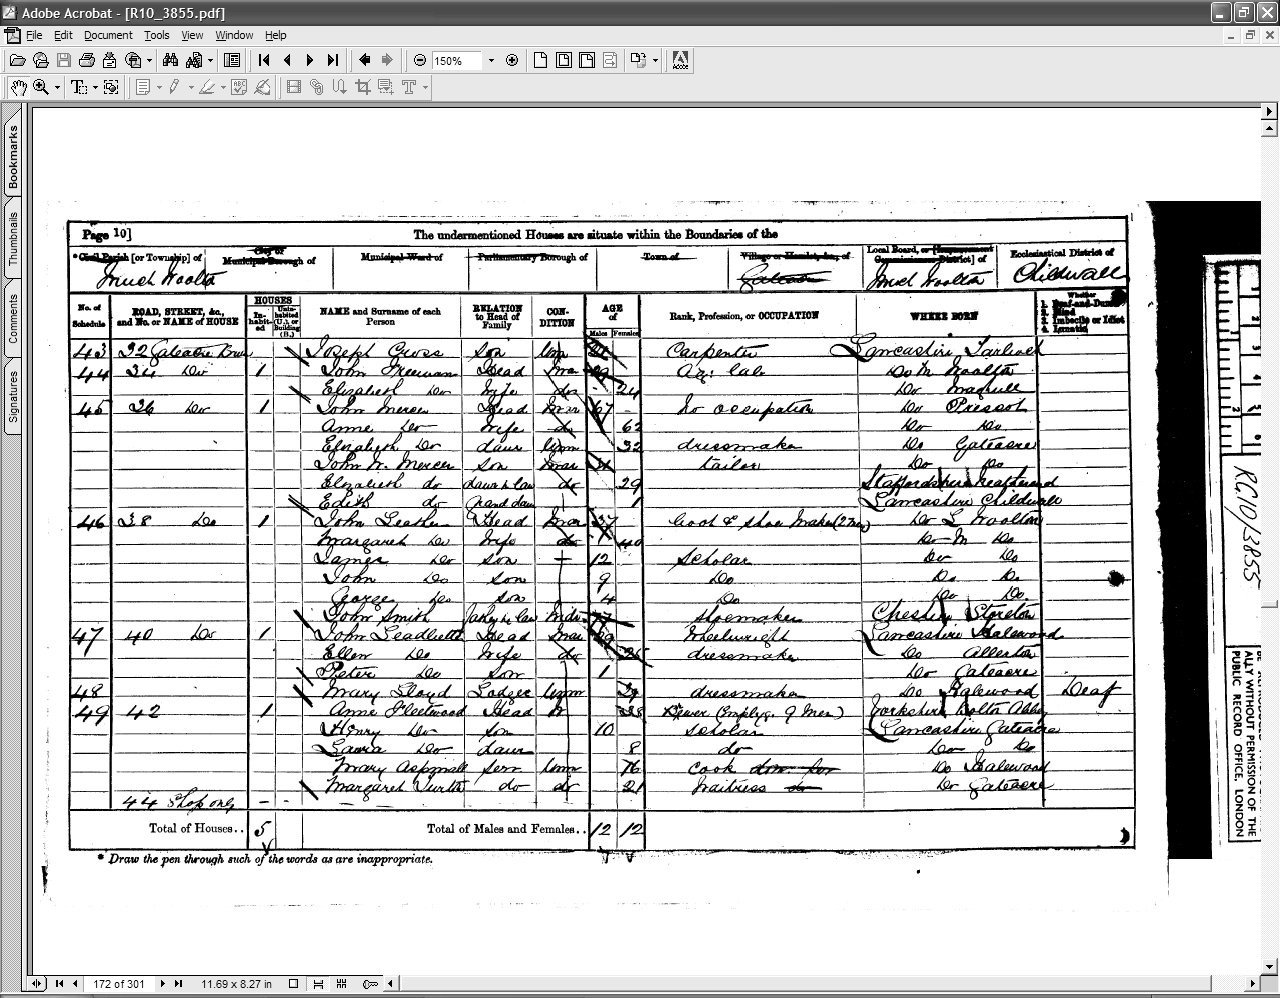 Adobe Acrobat - [R10_3855.pdf]
File Edit Document Tools View Window Help
150%
Bookmarks
Thumbnails
Comments
Signatures
Page 10] The undermentioned Houses are situate within the Boundaries of the
Civil Parish [or Township] of City or Municipal Borough of Municipal Ward of Parliamentary Borough of Town of Village or Hamlet, &c., of Local Board, or [Improvement Commissioners District] of Ecclesiastical District of
Much Woolton Gateacre Much Woolton Childwall
No. of Schedule ROAD, STREET, &c., and No. or NAME of HOUSE HOUSES In-habit-ed Unin-habited (U.), or Building (B.) NAME and Surname of each Person RELATION to Head of Family CON-DITION AGE of Males Females Rank, Profession, or OCCUPATION WHERE BORN Whether 1. Deaf-and-Dumb 2. Blind 3. Imbecile or Idiot 4. Lunatic
43 32 Gateacre Brow Joseph Cross son Unm Carpenter Lancashire
44 34 Do 1 John Freeman Head Mar 29 Ag: lab Do M Woolton
Elizabeth Do Wife do 24 Do Maghull
45 36 Do 1 John Mercer Head Mar 67 No occupation Do Prescot
Anne Do Wife do 62 Do Do
Elizabeth Do daur Unm 32 dressmaker Do Gateacre
John W. Mercer son Mar tailor Do Do
Elizabeth do daur in law do 29 Staffordshire
Edith do Grand daur 1 Lancashire Childwall
46 38 Do 1 John Leather Head Mar 37 Boot & shoe Maker (2 Men) Do L Woolton
Margaret Do Wife do 40 Do M Do
James Do son 12 Scholar Do Do
John Do son 9 Do Do Do
George Do son 4 Do Do Do
John Smith Father in law Widr 77 shoemaker Cheshire Storeton
47 40 Do 1 John Leadbetter Head Mar 29 Wheelwright Lancashire Halewood
Ellen Do Wife do dressmaker Do Allerton
Peter Do son 1 Do Gateacre
48 Mary Lloyd Lodger Unm 39 dressmaker Do Halewood Deaf
49 42 1 Anne Fleetwood Head W 38 Brewer (Employg. 9 Men) Yorkshire Bolton Abbey
Henry Do son 10 scholar Lancashire Gateacre
Laura Do daur 8 do Do Do
Mary Aspinall serv Unm 76 Cook Do Halewood
Margaret do do 21 Waitress do Do Gateacre
44 Shop only
Total of Houses.. 5 Total of Males and Females.. 12 12
* Draw the pen through such of the words as are inappropriate.
RG10/3855
ALLY WITHOUT PERMISSION OF THE
PUBLIC RECORD OFFICE, LONDON
172 of 301 11.69 x 8.27 in